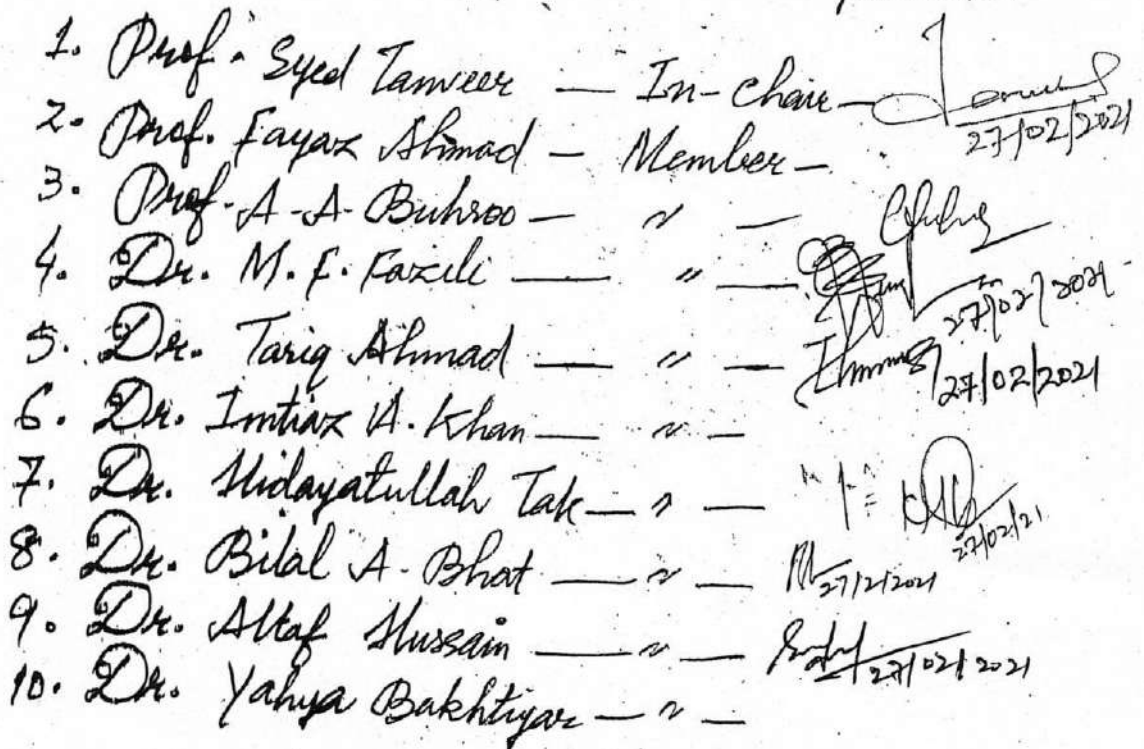 1. Prof. Syed Tanveer — In-chair — 27/02/2021
2. Prof. Fayaz Ahmad — Member —
3. Prof. A-A- Buhroo — " —
4. Dr. M. F. Fazili — " — 27/02/2021
5. Dr. Tariq Ahmad — " — 27/02/2021
6. Dr. Imtiaz A. Khan — " —
7. Dr. Hidayatullah Tak — " — 27/02/21
8. Dr. Bilal A. Bhat — " — 27/2/2021
9. Dr. Altaf Hussain — " — 27/02/2021
10. Dr. Yahya Bakhtiyar — " —